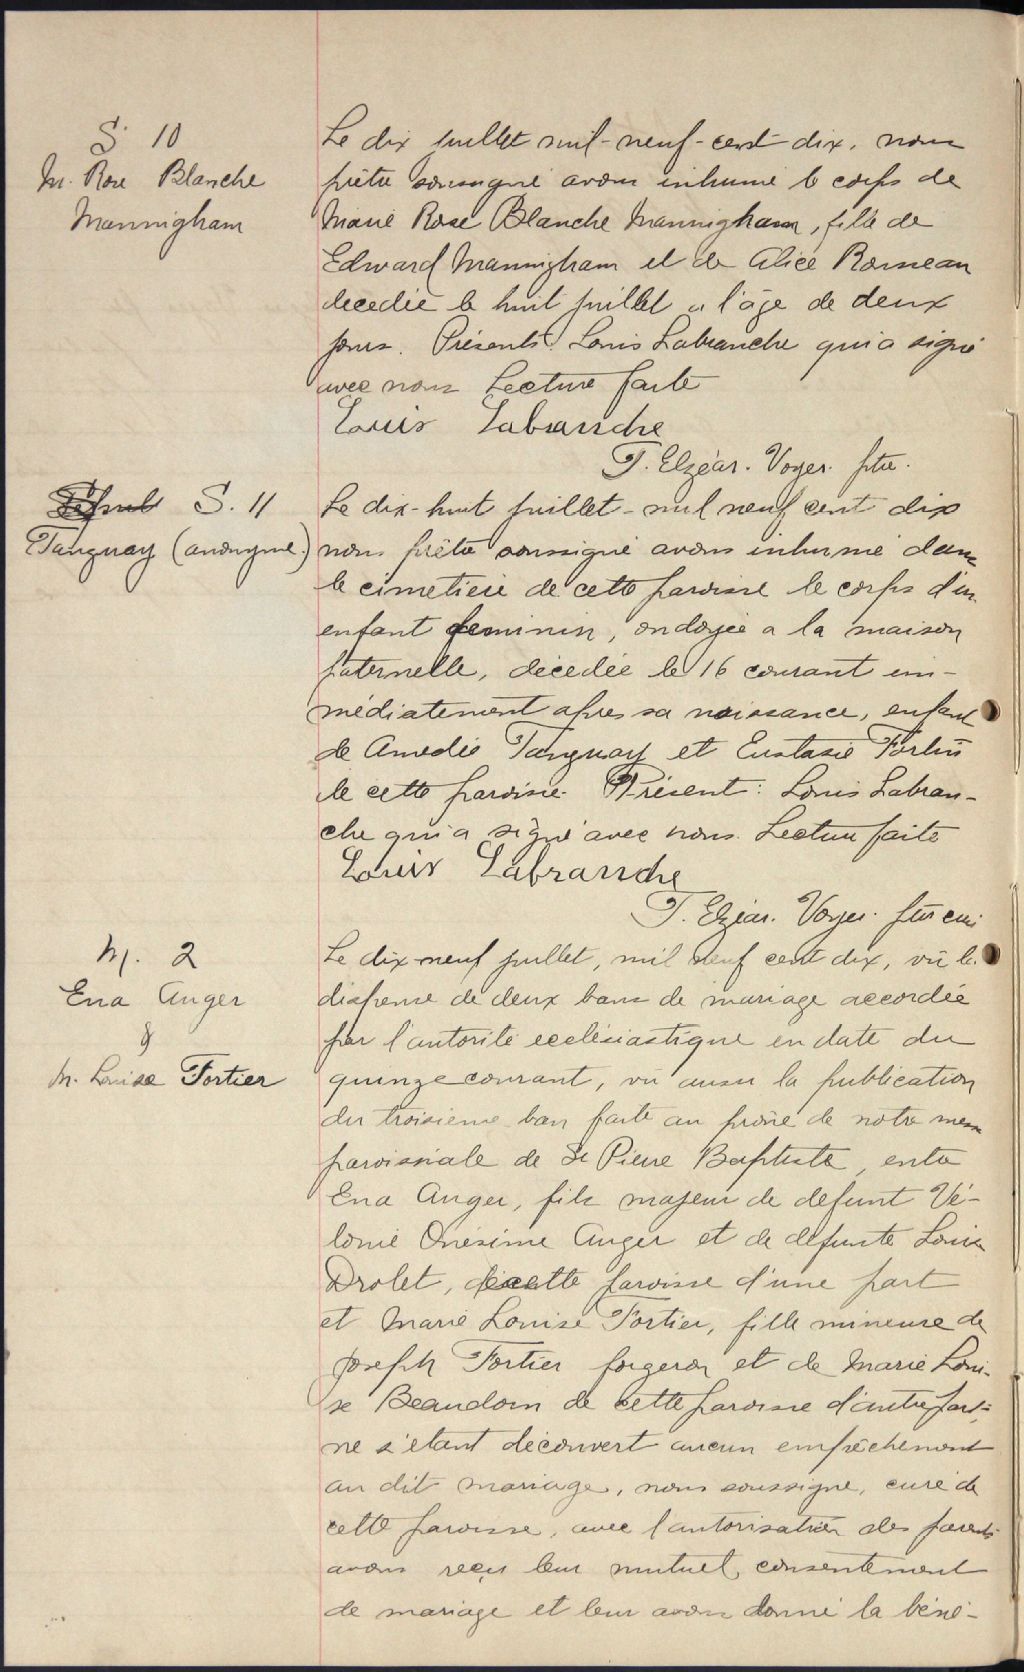 S. 10
M. Rose Blanche
Mannigham
Le dix juillet mil-neuf-cent-dix, nous
prêtre soussigné avons inhumé le corps de
Marie Rose Blanche Mannigham, fille de
Edward Mannigham et de Alice
decedée le huit juillet a l'âge de deux
jours. Présents: Louis Labranche qui a signé
avec nous Lecture faite
Louis Labranche
T. Elzéar. Voyer. ptre.
S. 11
Tanguay (anonyme.)
Le dix-huit juillet-mil neuf cent dix
nous prêtre soussigné avons inhumé dans
le cimetière de cette paroisse le corps d'un
enfant feminin, ondoyée a la maison
paternelle, décedée le 16 courant im-
médiatement apres sa naissance, enfant
de Amedée Tanguay et Eustasie Fortin
de cette paroisse. Présent: Louis Labran-
che qui a signé avec nous. Lecture faite
Louis Labranche
T. Elzéar. Voyer. ptre curé
M. 2
Ena Anger
&
M. Louise Fortier
Le dix-neuf juillet, mil neuf cent dix, vû la
dispense de deux bans de mariage accordée
par l'autorité ecclésiastique en date du
quinze courant, vû aussi la publication
du troisième ban faite au prône de notre messe
paroissiale de St Pierre Baptiste, entre
Ena Anger, fils majeur de defunt Vé-
lonie Onésime Anger et de defunte Louise
Drolet, de cette paroisse d'une part
et Marie Louise Fortier, fille mineure de
Joseph Fortier forgeron et de Marie Loui-
se Beaudoin de cette paroisse d'autre part;
ne s'étant découvert aucun empêchement
au dit mariage, nous soussigné, curé de
cette paroisse, avec l'autorisation des parents
avons reçu leur mutuel consentement
de mariage et leur avons donné la béné-